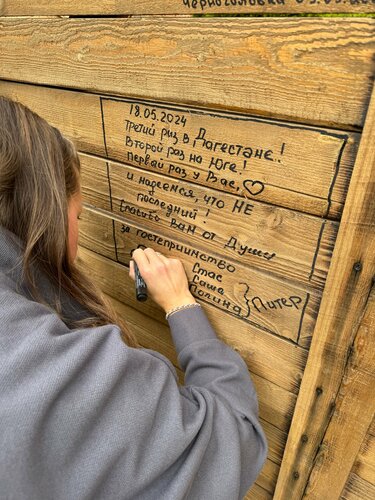 Черноголовка 03.05.
18.05.2024
Третий раз в Дагестане!
Второй раз на Юге!
Первый раз у Вас, ♡
и надеемся, что НЕ
последний!
Спасибо Вам от Души
за гостеприимство
Стас
Саша
Полина } Питер